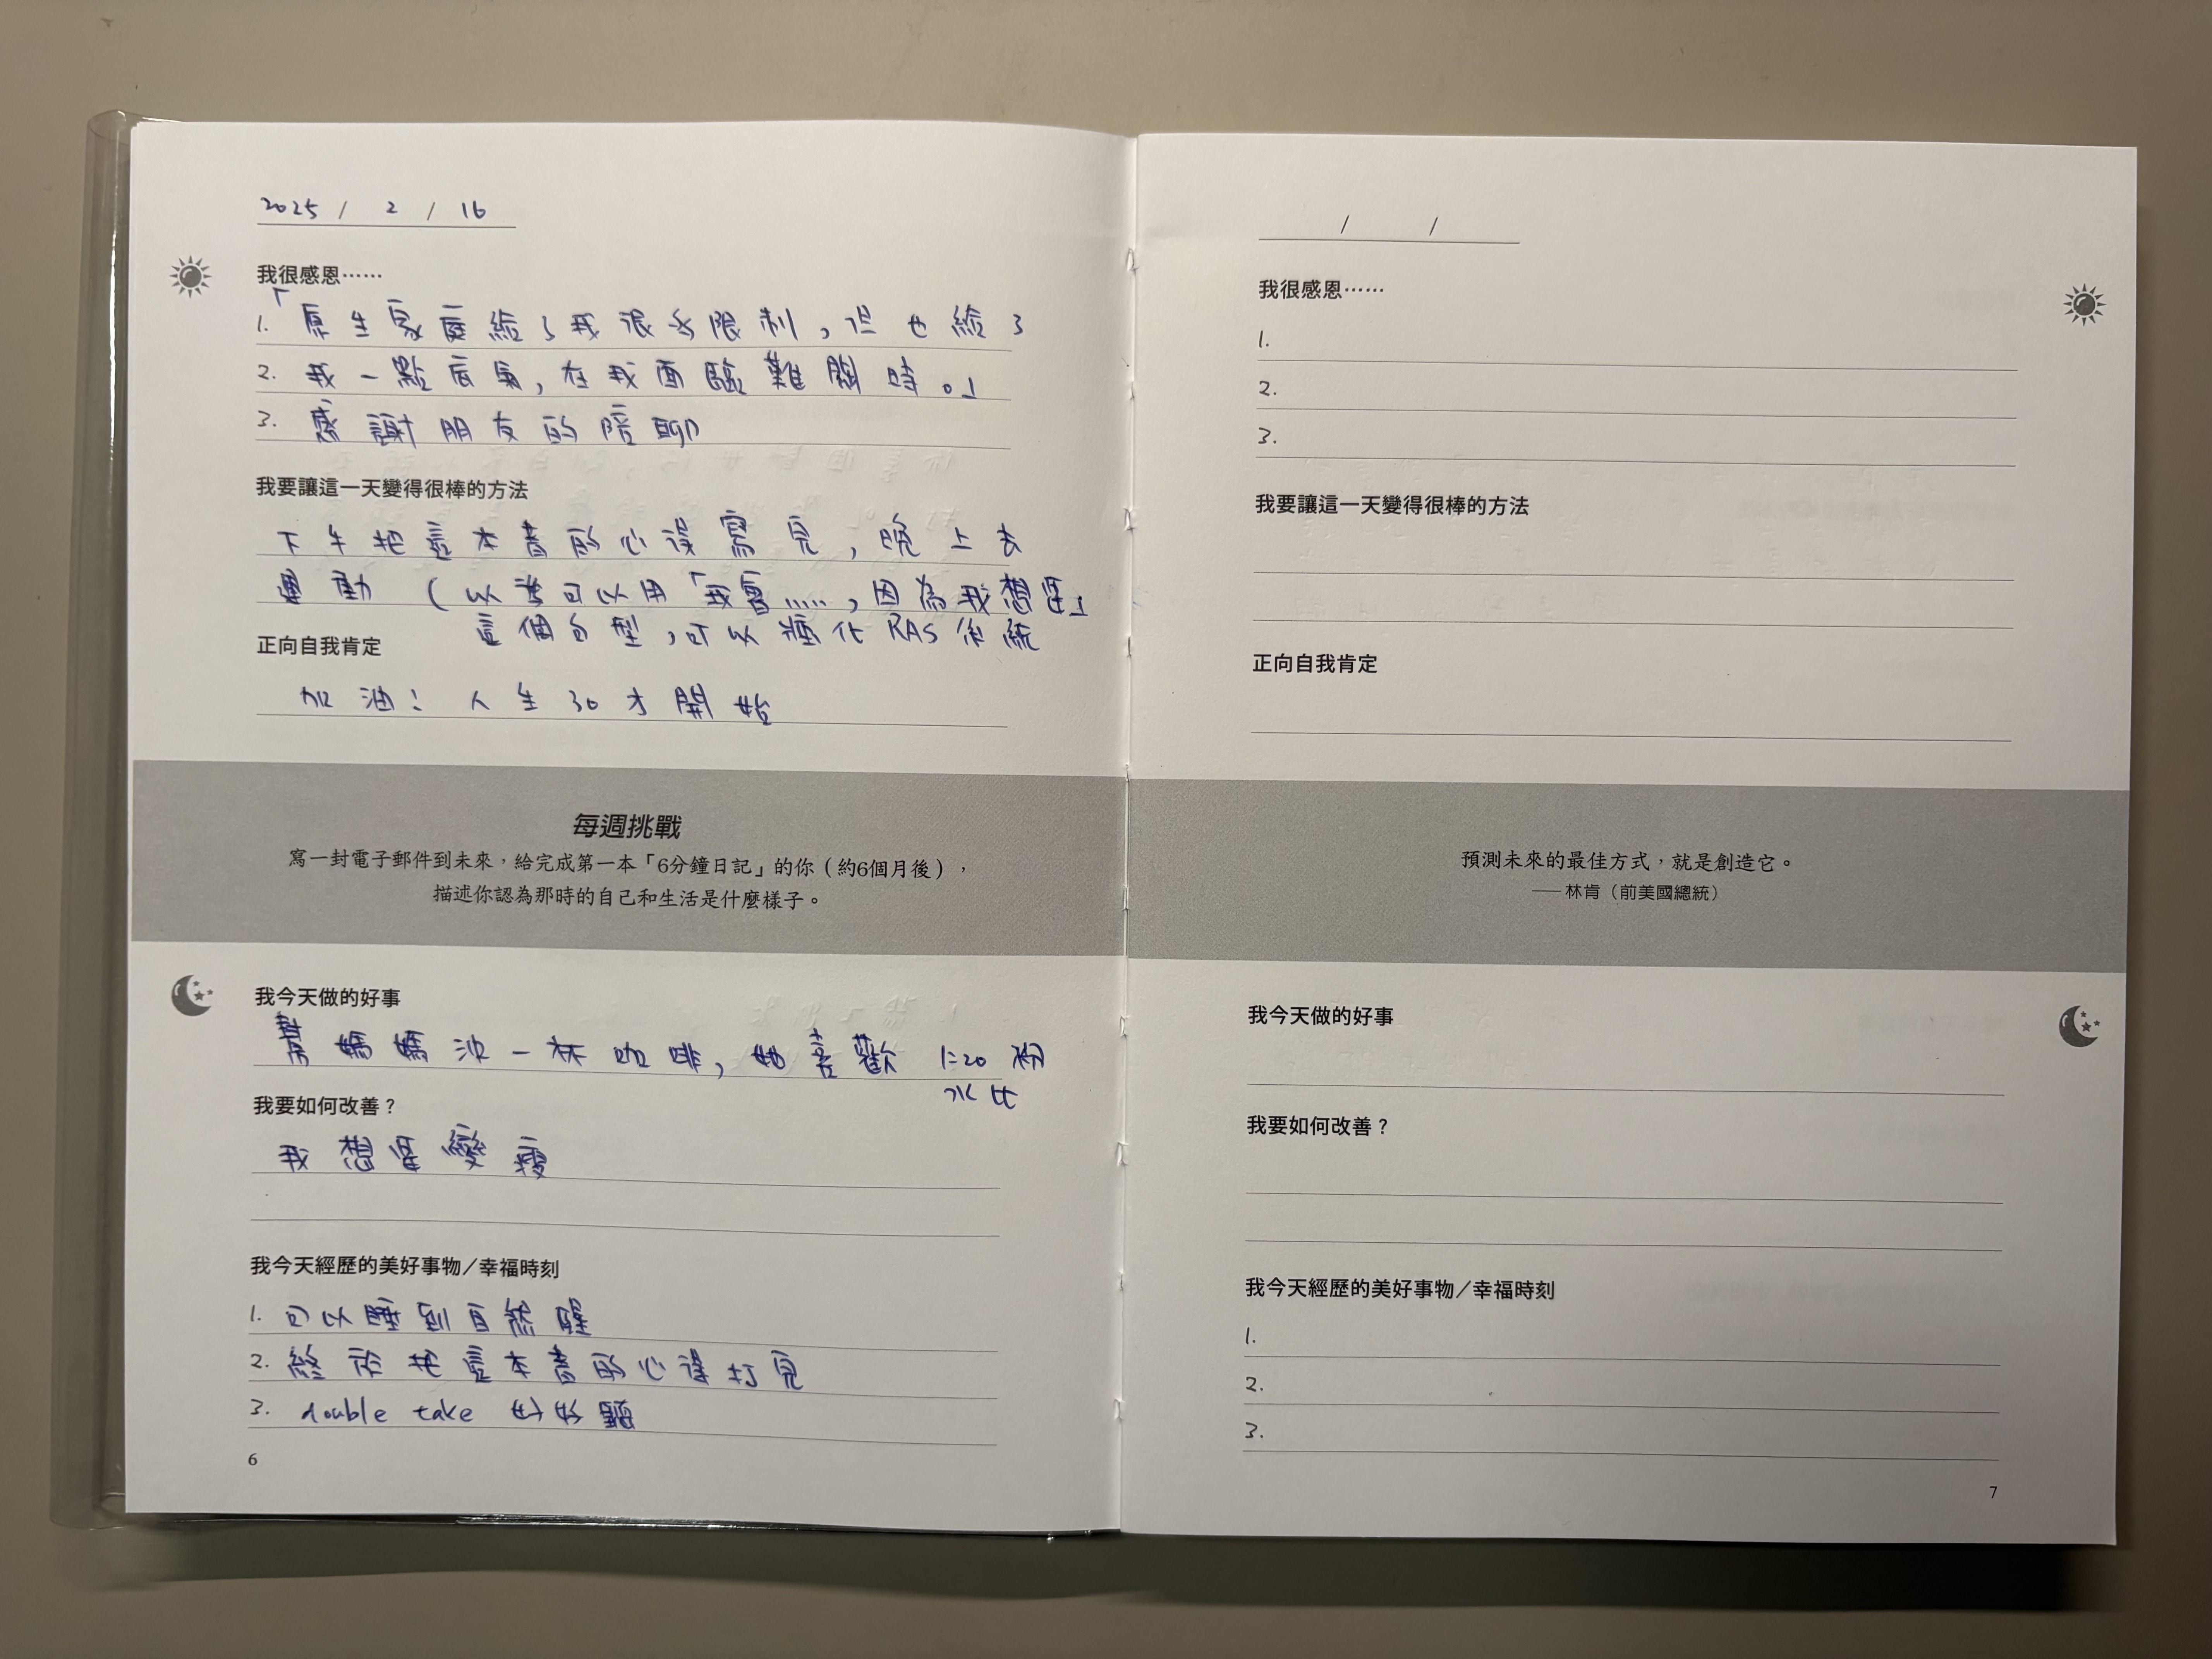 2025 / 2 / 16
我很感恩……
1. 「原生家庭給了我很多限制，但也給了
2. 我一點底氣，在我面臨難關時。」
3. 感謝朋友的陪聊
我要讓這一天變得很棒的方法
下午把這本書的心得寫完，晚上去
運動（以後可以用「我會……，因為我想要」
這個句型，可以強化RAS系統
正向自我肯定
加油！人生30才開始
每週挑戰
寫一封電子郵件到未來，給完成第一本「6分鐘日記」的你（約6個月後），
描述你認為那時的自己和生活是什麼樣子。
我今天做的好事
幫媽媽沖一杯咖啡，她喜歡 1:20 粉
水比
我要如何改善？
我想要變瘦
我今天經歷的美好事物／幸福時刻
1. 可以睡到自然醒
2. 終於把這本書的心得打完
3. double take 好好聽
6
/ /
我很感恩……
1.
2.
3.
我要讓這一天變得很棒的方法
正向自我肯定
預測未來的最佳方式，就是創造它。
——林肯（前美國總統）
我今天做的好事
我要如何改善？
我今天經歷的美好事物／幸福時刻
1.
2.
3.
7